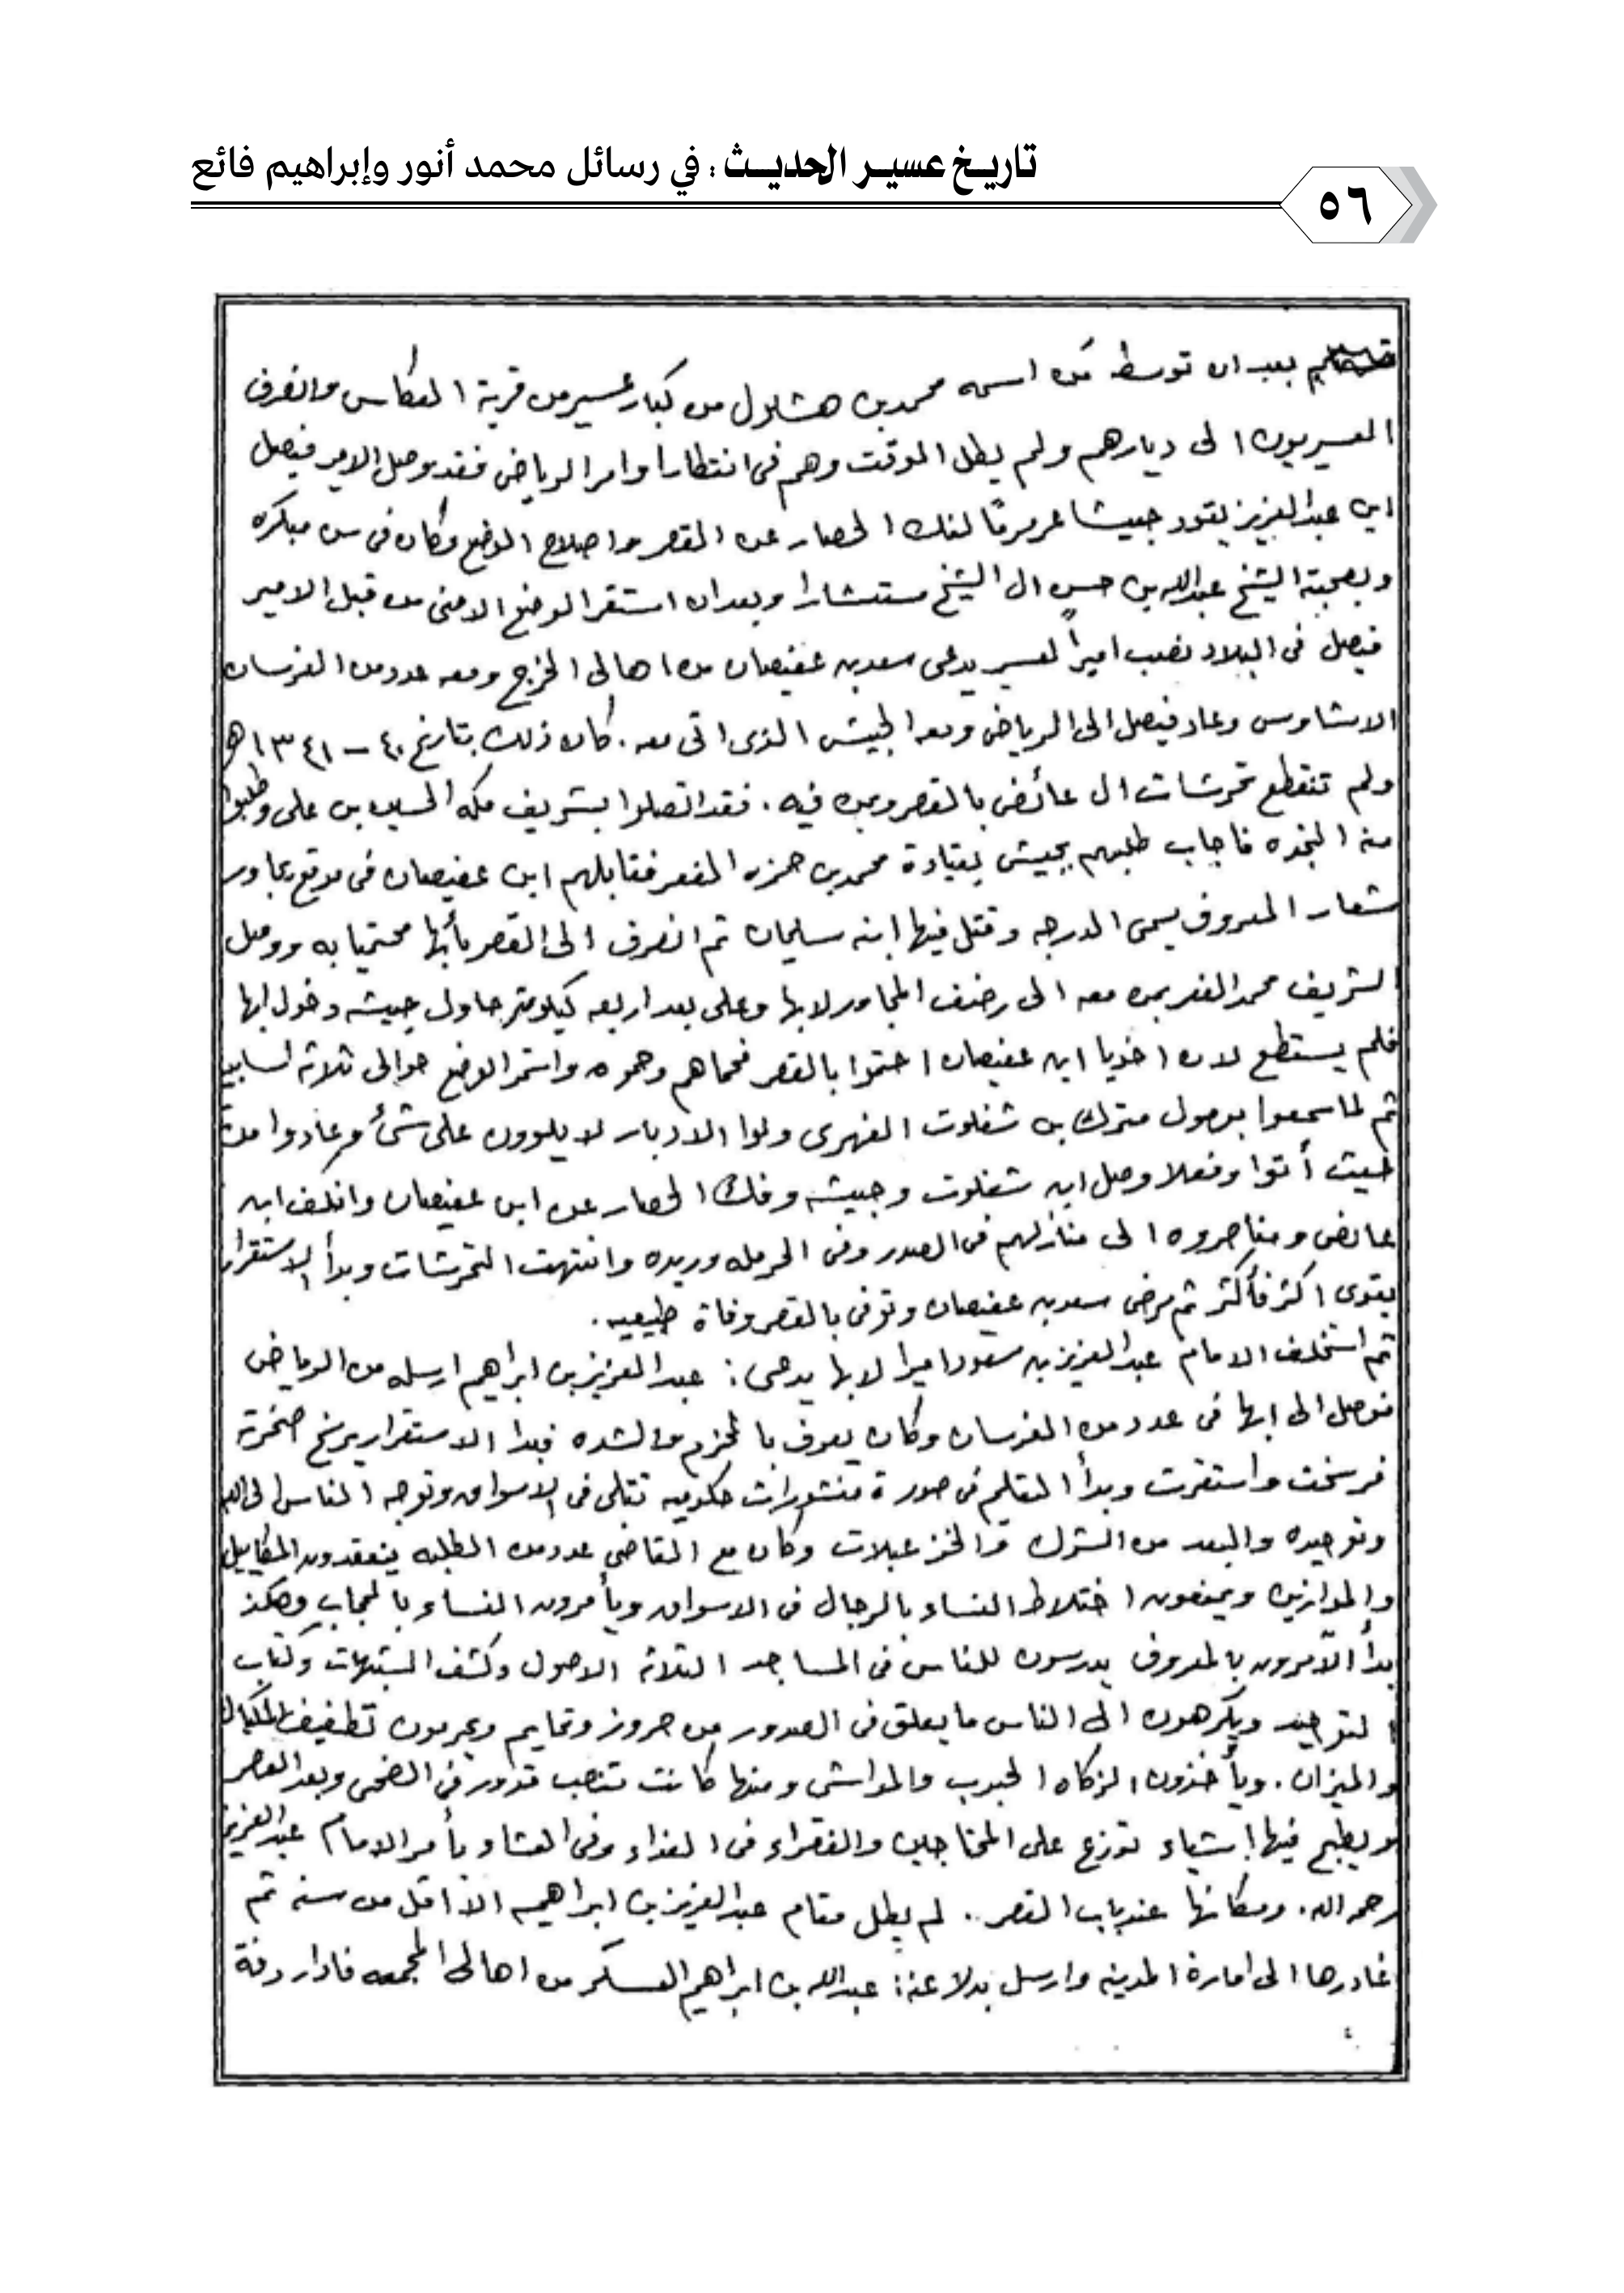 تاريخ عسير الحديث : في رسائل محمد أنور وإبراهيم فائع
٥٦
بعد ان توسط من اسمه محمد بن هشلول من كبار عسير من قرية العكاس وانصرف
العسيريون الى ديارهم ولم يطل الوقت وهم في انتظار اوامر الرياض فقد وصل الامير فيصل
ابن عبدالعزيز يقود جيشا عرمرمًا لفك الحصار عن القصر واصلاح الوضع وكان في سن مبكره
وبصحبته الشيخ عبدالله بن حسن ال الشيخ مستشارا وبعد ان استقر الوضع الامني من قبل الامير
فيصل في البلاد نصب اميراً لعسير يدعى سعد بن عفيصان من اهالي الخرج ومعه عدد من الفرسان
الاشاوس وعاد فيصل الى الرياض ومعه الجيش الذي اتى معه . كان ذلك بتاريخ ٤٠ - ١٣٤١هـ
ولم تنقطع تحرشات ال عائض بالقصر وبمن فيه . فقد اتصلوا بشريف مكه الحسين بن على وطلبوا
منه النجده فاجاب طلبهم بجيش بقيادة محمد بن حمزه الفعر فقابلهم ابن عفيصان في موقع بجاور
شعار المعروف يسمى الدرجه وقتل فيها ابنه سليمان ثم انصرف الى القصر بأبها محتميا به ووصل
الشريف محمد الفعر بمن معه الى رضف المجاور لابها وعلى بعد اربعه كيلومتر حاول جيشه دخول ابها
فلم يستطع لان اخويا ابن عفيصان احتموا بالقصر فحماهم وحموه واستمر الوضع حوالى ثلاثه اسابيع
ثم لما سمعوا بوصول مترك بن شفلوت الفهرى ولوا الادبار لا يلوون على شئ وعادوا من
حيث أتوا وفعلا وصل ابن شفلوت وجيشه وفك الحصار عن ابن عفيصان وانكف ابن
عائض ومناصروه الى منازلهم في الصدر وفى الحرمله وريده وانتهت التحرشات وبدأ الاستقرار
يقوى اكثر فأكثر ثم مرض سعد بن عفيصان وتوفى بالقصر وفاة طبيعيه .
ثم استخلف الامام عبدالعزيز بن سعود اميرا لابها يدعى : عبدالعزيز بن ابراهيم ارسله من الرياض
فوصل الى ابها في عدد من الفرسان وكان يعرف بالحزم والشده فبدا الاستقرار يرسخ صخرته
فرسخت واستقرت وبدأ التعليم في صورة منشورات حكوميه تتلى في الاسواق وتوجه الناس الى الله
وتوحيده والبعد من الشرك والخزعبلات وكان مع القاضي عدد من الطلبه يتفقدون المكاييل
والموازين ويمنعون اختلاط النساء بالرجال في الاسواق ويأمرون النساء بالحجاب وهكذ
بدأ الآمرون بالمعروف يدرسون للناس في المساجد الثلاثه الاصول وكشف الشبهات وكتاب
التوحيد ويكرهون الى الناس ما يعلق في الصدور من حروز وتمايم ويحرمون تطفيف المكيال
والميزان . ويأخذون الزكاه الحبوب والمواشى ومنها كانت تنصب قدور في الضحى وبعد العصر
ويطبخ فيها اشياء توزع على المحتاجين والفقراء في الغداء وفى العشاء بأمر الامام عبدالعزيز
رحمه الله . ومكانها عند باب القصر .. لم يطل مقام عبدالعزيز بن ابراهيم الا اقل من سنه ثم
غادرها الى امارة المدينه وارسل بدلا عنه : عبدالله بن ابراهيم العسكر من اهالى المجمعه فادار دفة
٤